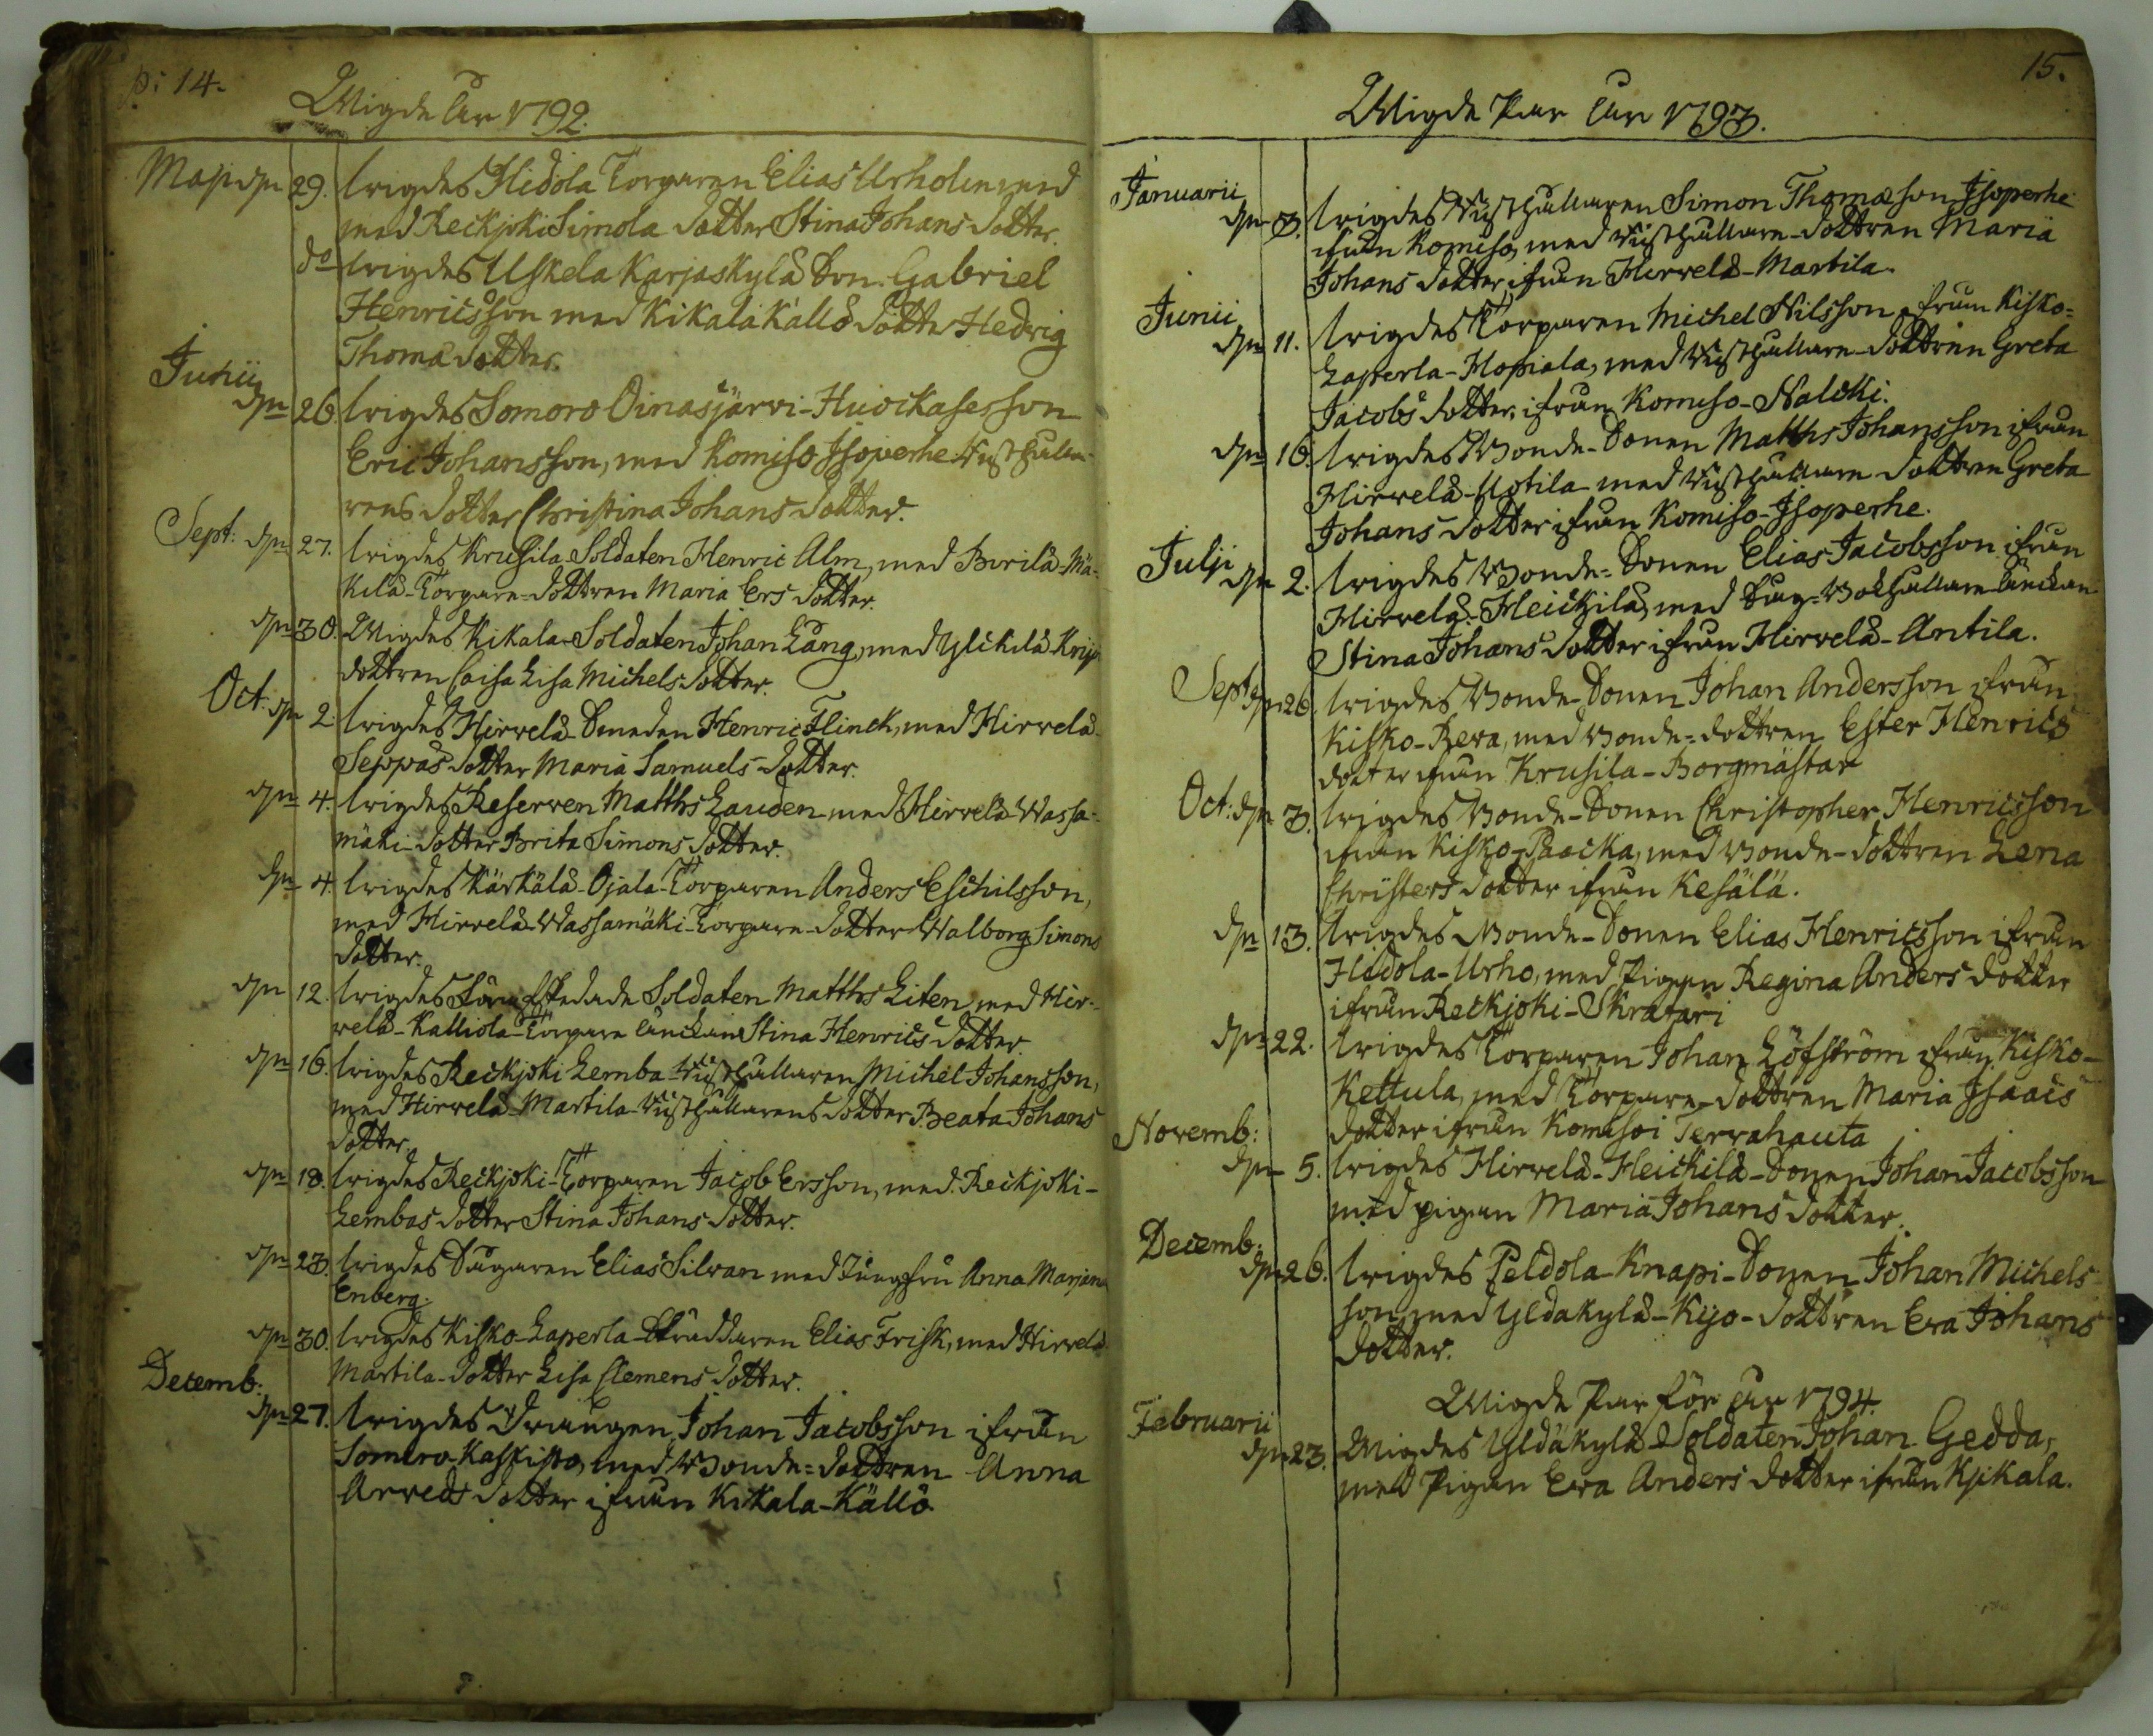 p: 14.
Wigde år 1792.
Maji den 29. wigdes Hidola Torparen Elias Urholin med
med Reckjoki Simola dotter Stina Johans dotter.
do wigdes Uskela Karjaskylä Son. Gabriel
Henricsson med Kikala Källö dotter Hedvig
Thomæ dotter.
Junii
den 26. wigdes Somero Oinasjärvi-Huickasesson
Eric Johansson, med Komiso Isoperhe Rusthålla-
rens dotter Christina Johans dotter.
Sept: den 27. wigdes Krusila Soldaten Henric Alm, med Pirilä-Mä-
kilä-Torpare-dottren Maria Ers dotter.
den 30. Wigdes Kikala Soldaten Johan Lång, med Ylikulä
dottren Caisa Lisa Michels dotter.
Oct: den 2. wigdes Hirvelä-Smeden Henric Flinck, med Hirvelä
Seppäs dotter Maria Samuels dotter.
den 4. wigdes Reserven Matths Lauden med Hirvelä Wassa-
mäki-dotter Brita Simons dotter.
den 4. wigdes Kärkälä-Ojala-Torparen Anders Eschilsson,
med Hirvelä-Wassamäki-Torpare-dotter Walborg Simons
dotter.
den 12. wigdes Soldaten Matths Liten, med Hir-
velä-Kalliola-Torpare änckan Stina Henrics dotter.
den 16. wigdes Reckjoki Lemba-Rusthållaren Michel Johansson,
med Hirvelä-Martila-Rusthållarens dotter Beata Johans
dotter.
den 18. wigdes Reckjoki-Torparen Jacob Ersson, med Reckjoki-
Lembas dotter Stina Johans dotter.
den 23. wigdes Sågaren Elias Silvan med Jungfru Anna Marjana
Enberg.
den 30. wigdes Kisko-Laperla-Skräddaren Elias Frisk, med Hirvelä
Martila-dotter Lisa Clemens dotter.
Decemb:
den 27. wigdes Drängen Johan Jacobsson ifrån
Somero-Kaskisto, med Bonde-dottren Anna
Arveds dotter ifrån Kikala-Källö.
15.
Wigde Par år 1793.
Januarii
den 3. wigdes Rusthållaren Simon Thomæson Isoperhe
ifrån Komiso, med Rusthållare-dottren Maria
Johans dotter ifrån Hirvelä-Martila.
Junii
den 11. wigdes Torparen Michel Nilsson ifrån Kisko-
Laperla-Hopiala, med Rusthållare-dottren Greta
Jacobs dotter ifrån Komiso-Nalcki.
den 16. wigdes Bonde-Sonen Matths Johansson ifrån
Hirvelä-Uotila med Rusthållare dottren Greta
Johans dotter ifrån Komiso-Isoperhe.
Julji den 2. wigdes Bonde-Sonen Elias Jacobsson ifrån
Hirvelä-Heickilä, med änckan
Stina Johans dotter ifrån Hirvelä-Antila.
Sept: den 26. wigdes Bonde-Sonen Johan Andersson ifrån
Kisko-Reva, med Bonde-dottren Ester Henrics
dotter ifrån Krusila-Borgmästar
Oct: den 3. wigdes Bonde-Sonen Christopher Henricsson
ifrån Kisko-Paacka, med Bonde-dottren Lena
Christers dotter ifrån Kesälä.
den 13. wigdes Bonde-Sonen Elias Henricsson ifrån
Hidola-Urho, med Pigan Regina Anders dotter
ifrån Reckjoki-Skratari
den 22. wigdes Torparen Johan Löfström ifrån Kisko-
Kettula, med Torpare-dottren Maria Isaacs
dotter ifrån Komisoi Tervahauta
Novemb:
den 5. wigdes Hirvelä-Heickilä-Sonen Johan Jacobsson
med pigan Maria Johans dotter.
Decemb:
den 26. wigdes Peldola-Knapi-Sonen Johan Michels-
son, med Yldäkylä-Kijo-dottren Eva Johans
dotter.
Wigde Par för år 1794.
Februarii
den 23. Wigdes Yldäkylä Soldaten Johan Gedda,
med Pigan Eva Anders dotter ifrån Kjikala.